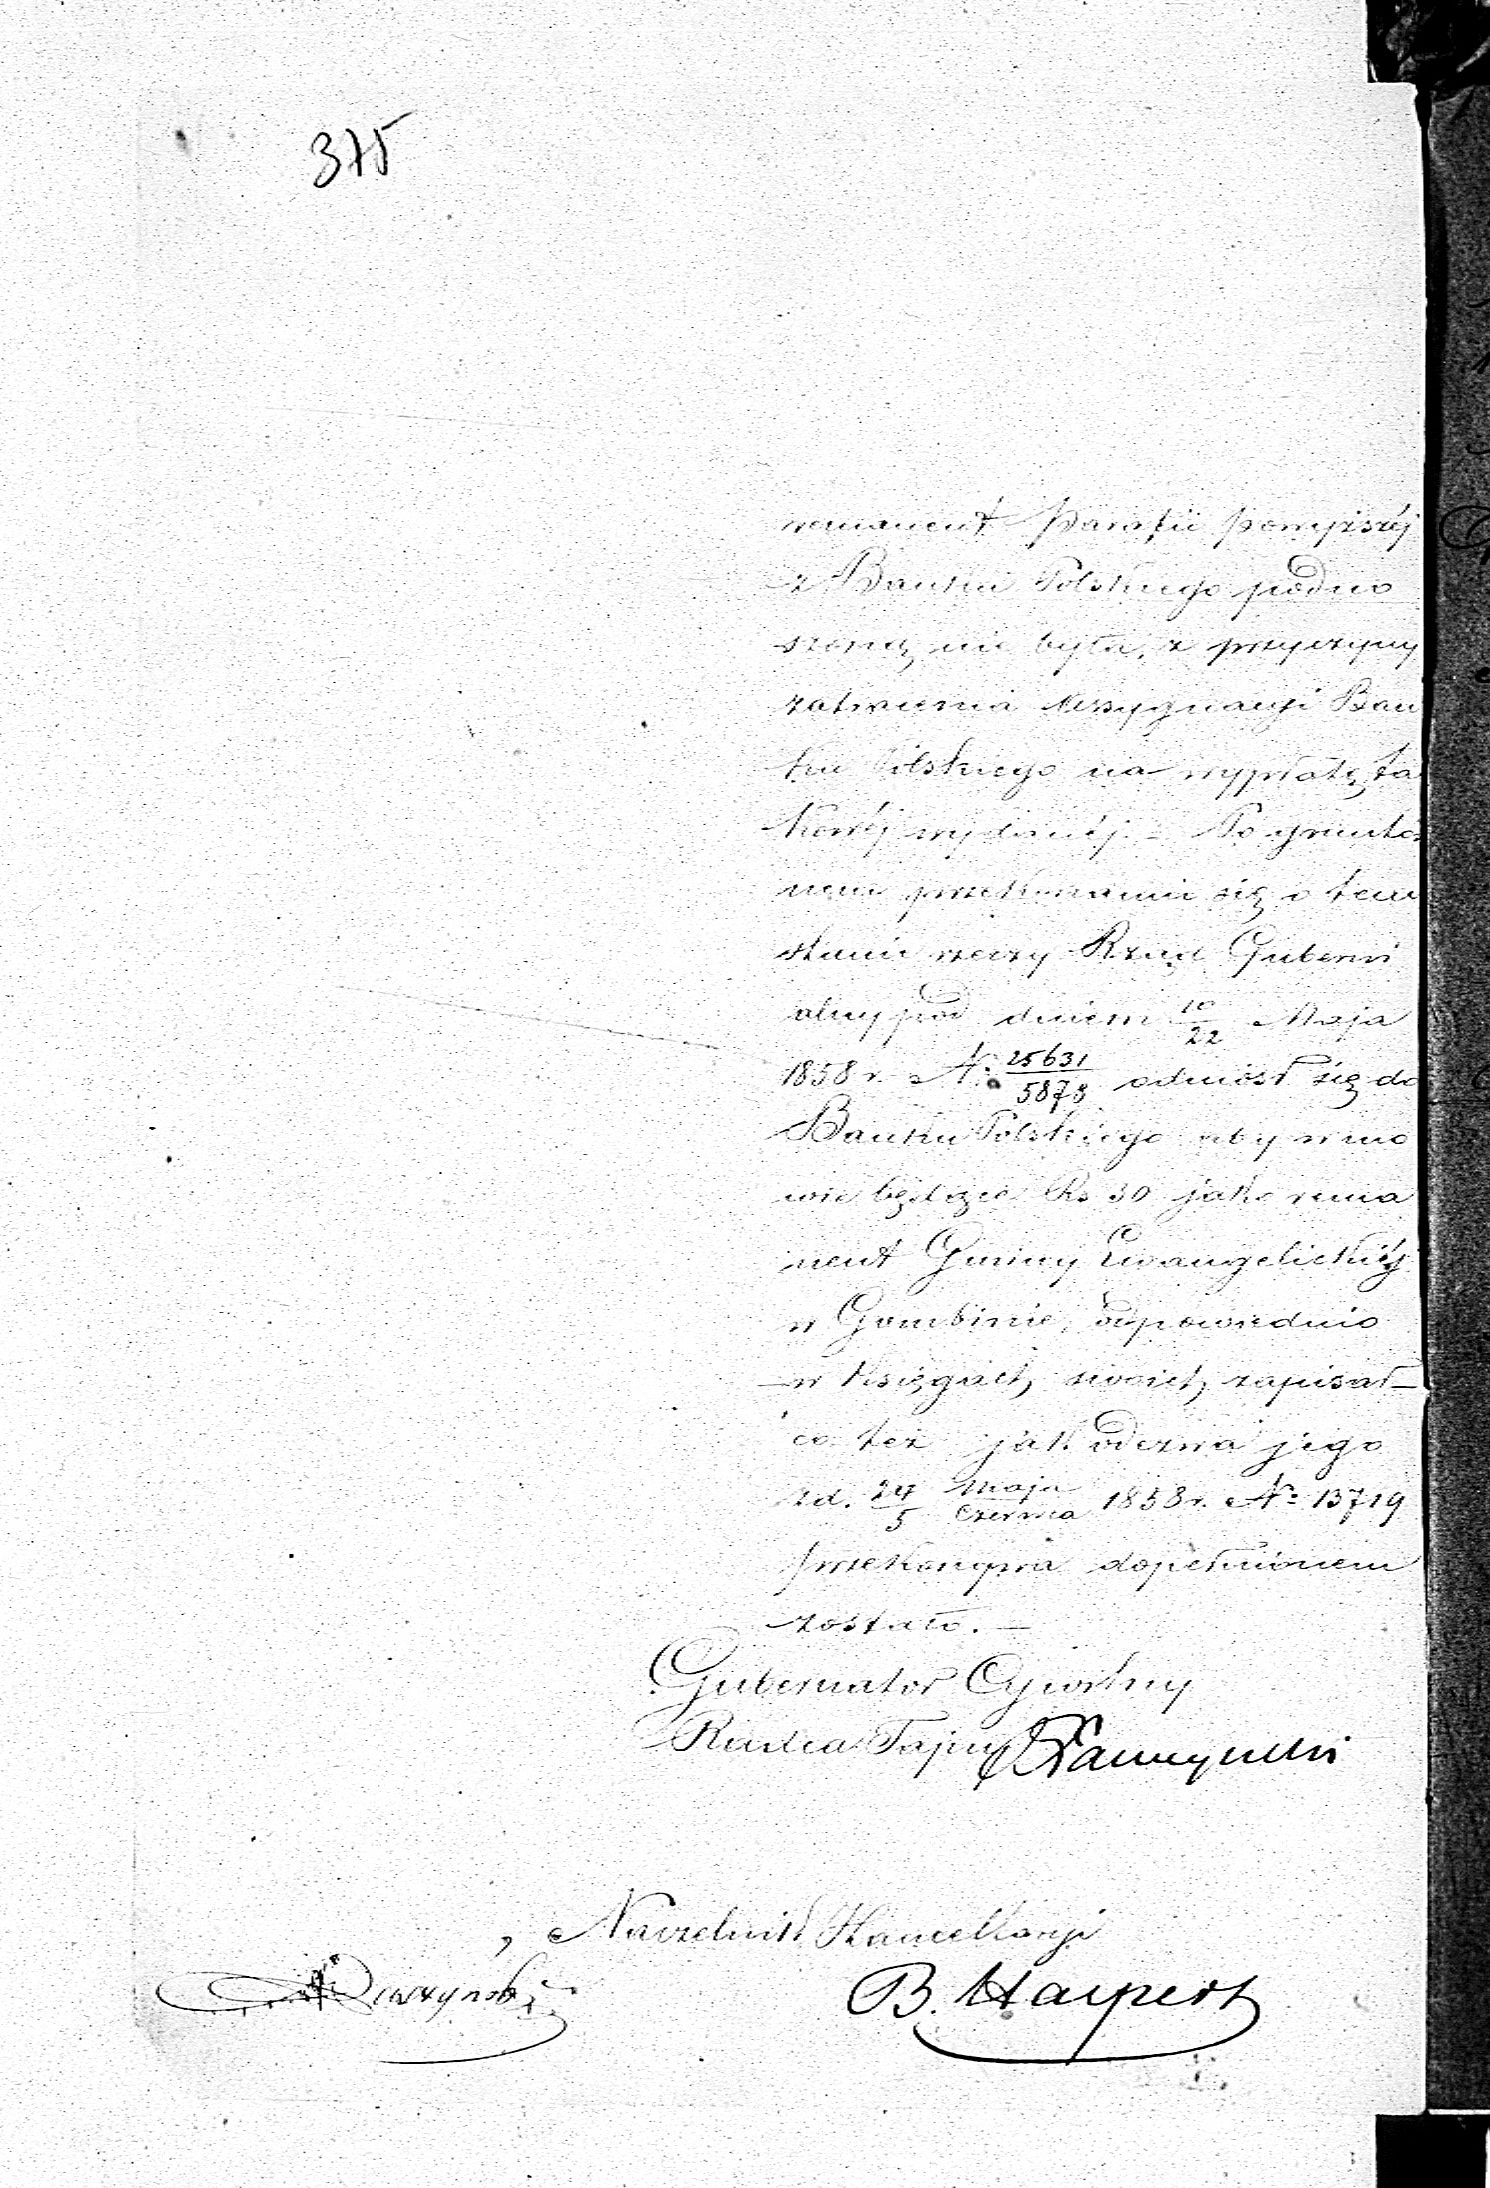 375
remanent Parafii powyższéj
z Banku Polskiego podno
szoną nie była, z przyczyny
zatracenia Assygnacyi Ban
ku Polskiego na wypłatę ta
kowéj wydanéj. – Po grunto
nem przekonaniu się o tem
stanie rzeczy Rząd Guberni
alny pod dniem 10/22 Maja
1858 r. N: 25631/5878 odniósł się do
Banku Polskiego aby w mo
wie będące Rs 30 jako rema
nent Gminy Ewangelickiéj
w Gombinie, odpowiednio
w księgach swoich zapisał –
co też jak odezwa jego
z d. 24/5 Maja/Czerwca 1858 r. N: 13719
przekonywa dopełnionem
zostało. –
Gubernator Cywilny
Radca Tajny
Naczelnik Kancellaryi
B. Halpert